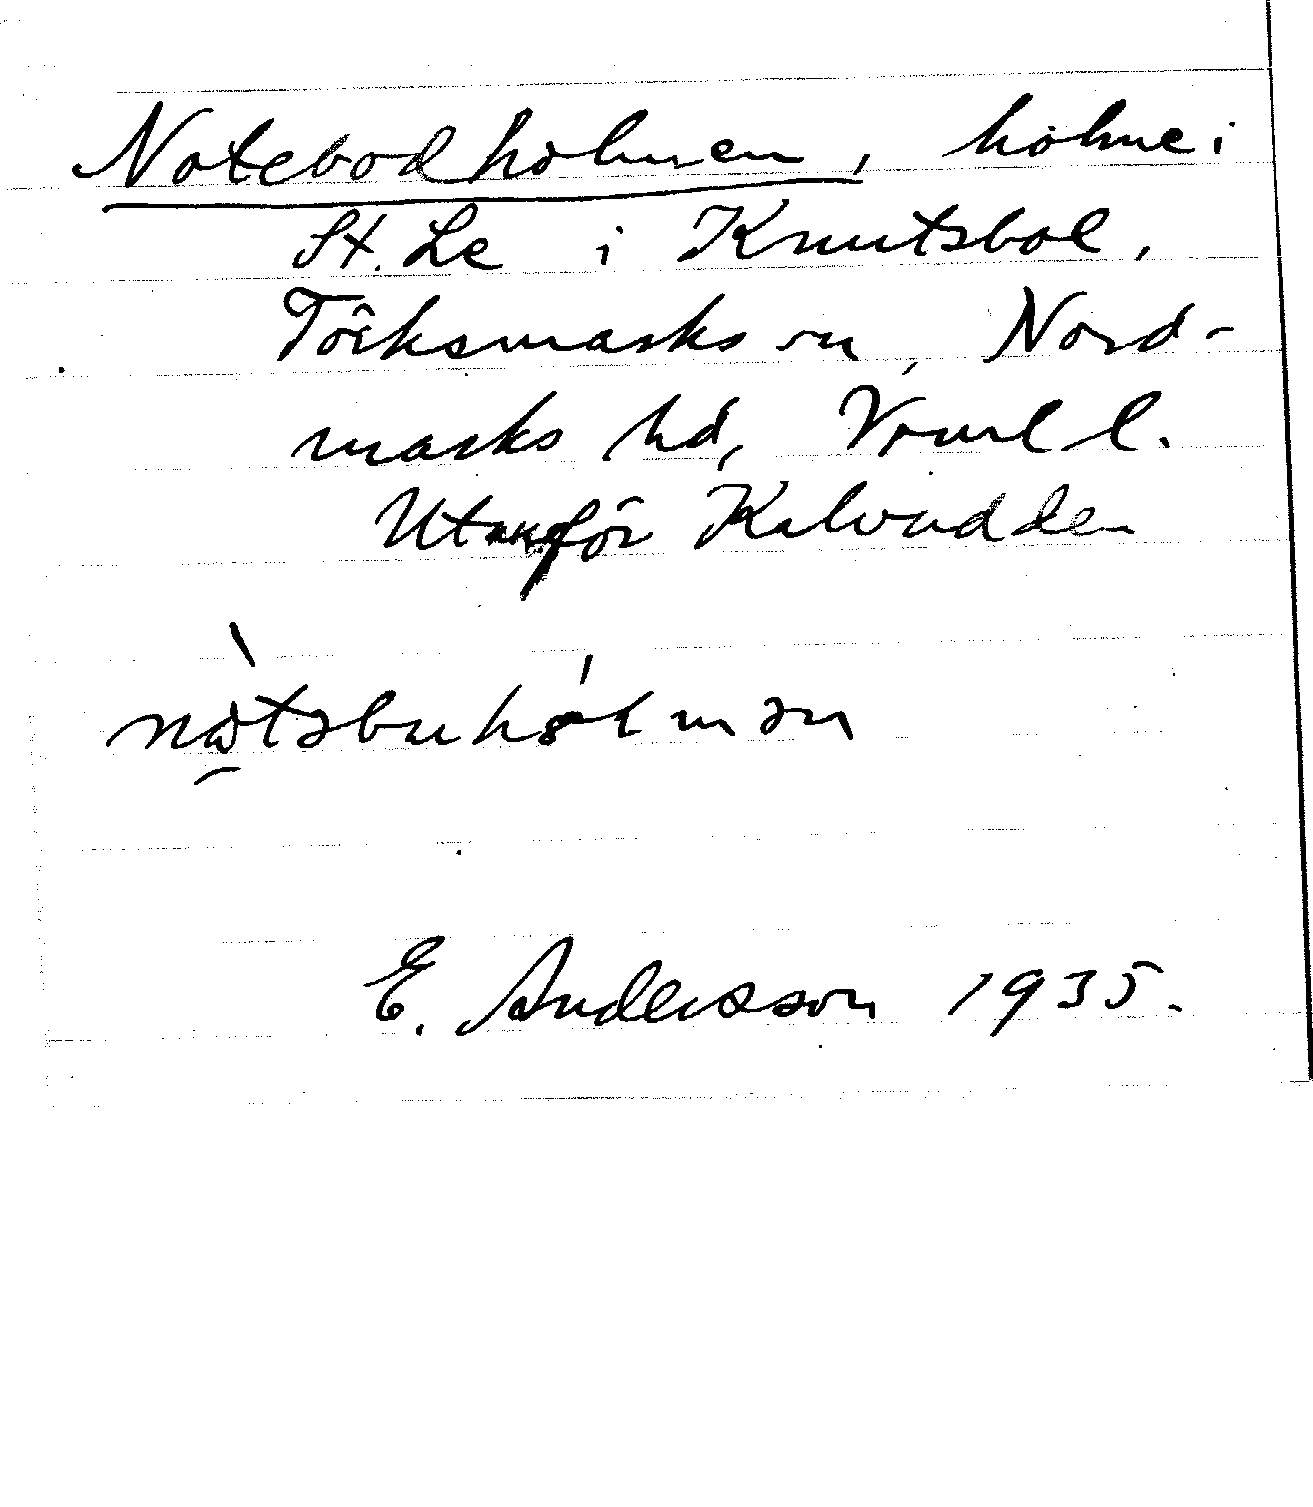 Notebodholmen, holme i
St. Le i Knutsbol,
Töcksmarks sn, Nord-
marks hd, Vrml l.
Utanför Kalvudden
E. Andersson 1935.